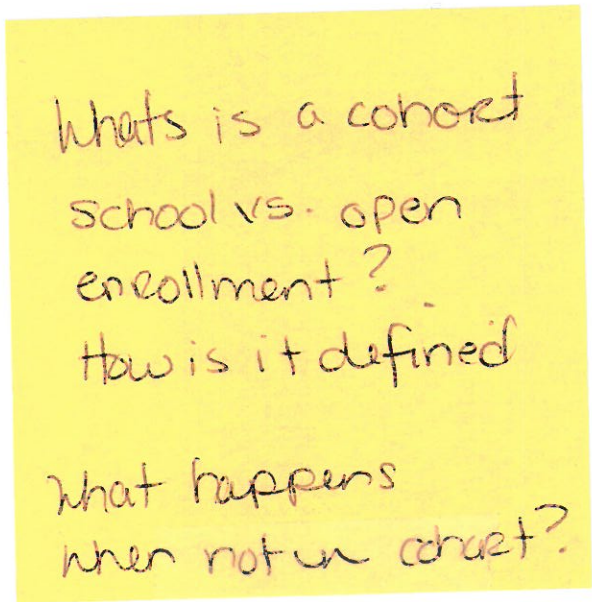 Whats is a cohort
school vs. open
enrollment?
How is it defined
What happens
when not in cohort?